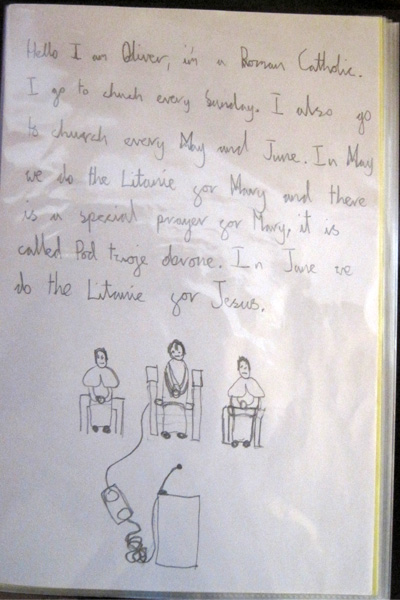 Hello I am Oliver, i'm a Roman Catholic.
I go to church every Sunday. I also go
to church every May and June. In May
we do the Litanie for Mary and there
is a special prayer for Mary, it is
called Pod twoje obrone. In June we
do the Litanie for Jesus.